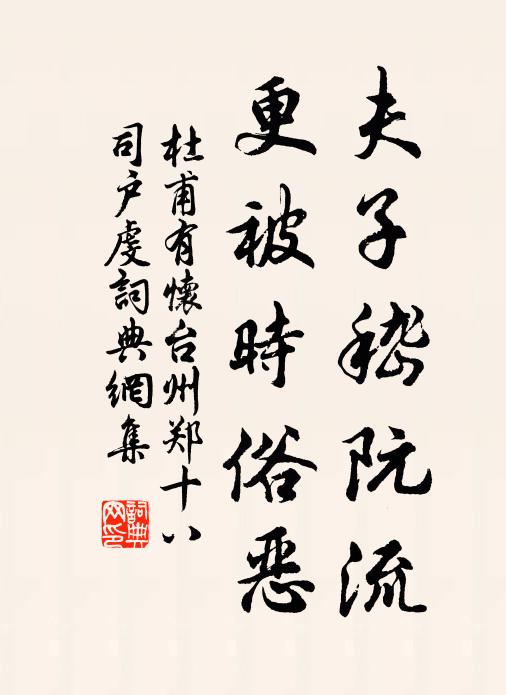 夫子嵇阮流
更被時俗惡
杜甫有懷台州郑十八
司户虔詞典網集
詞典网印